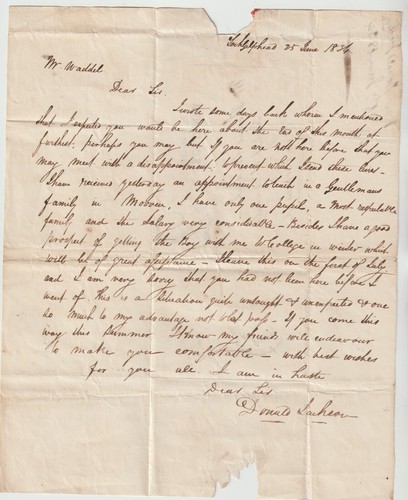 Lochgilphead 25 June 1834
Mr Waddel
Dear Sir.
I wrote some days back wherein I mentioned
that I expected you would be here about the End of this month at
furthest, perhaps you may but If you are not here before that you
may meet with a disappointment, to prevent which I send these lines -
I have received yesterday an appointment to teach in a Gentlemans
family in Morvern, I have only one pupil, a most respectable
family and the salary very considerable - Besides I have a good
prospect of getting the boy with me to College in winter which
will be of great assistance - I leave this on the first of July
and I am very sorry that you had not been here before I
went off this is a situation quite unsought & unexpected & one
so much to my advantage not to let pass - If you come this
way this summer I know my friends will endeavour
to make you comfortable - with best wishes
for you all I am in haste
Dear Sir
Donald Jackson